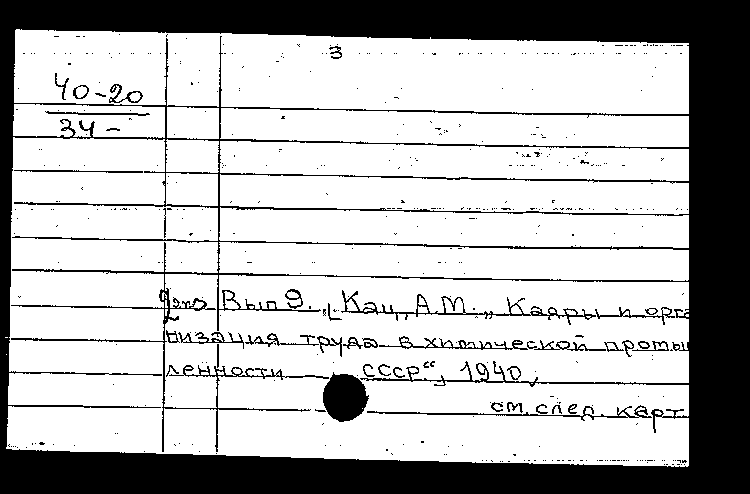 3
40-20
34-
Доп Вып 9. „[Кац, А.М. „ Кадры и орга
низация труда в химической промыш
ленности СССР“], 1940,
см. след. карт